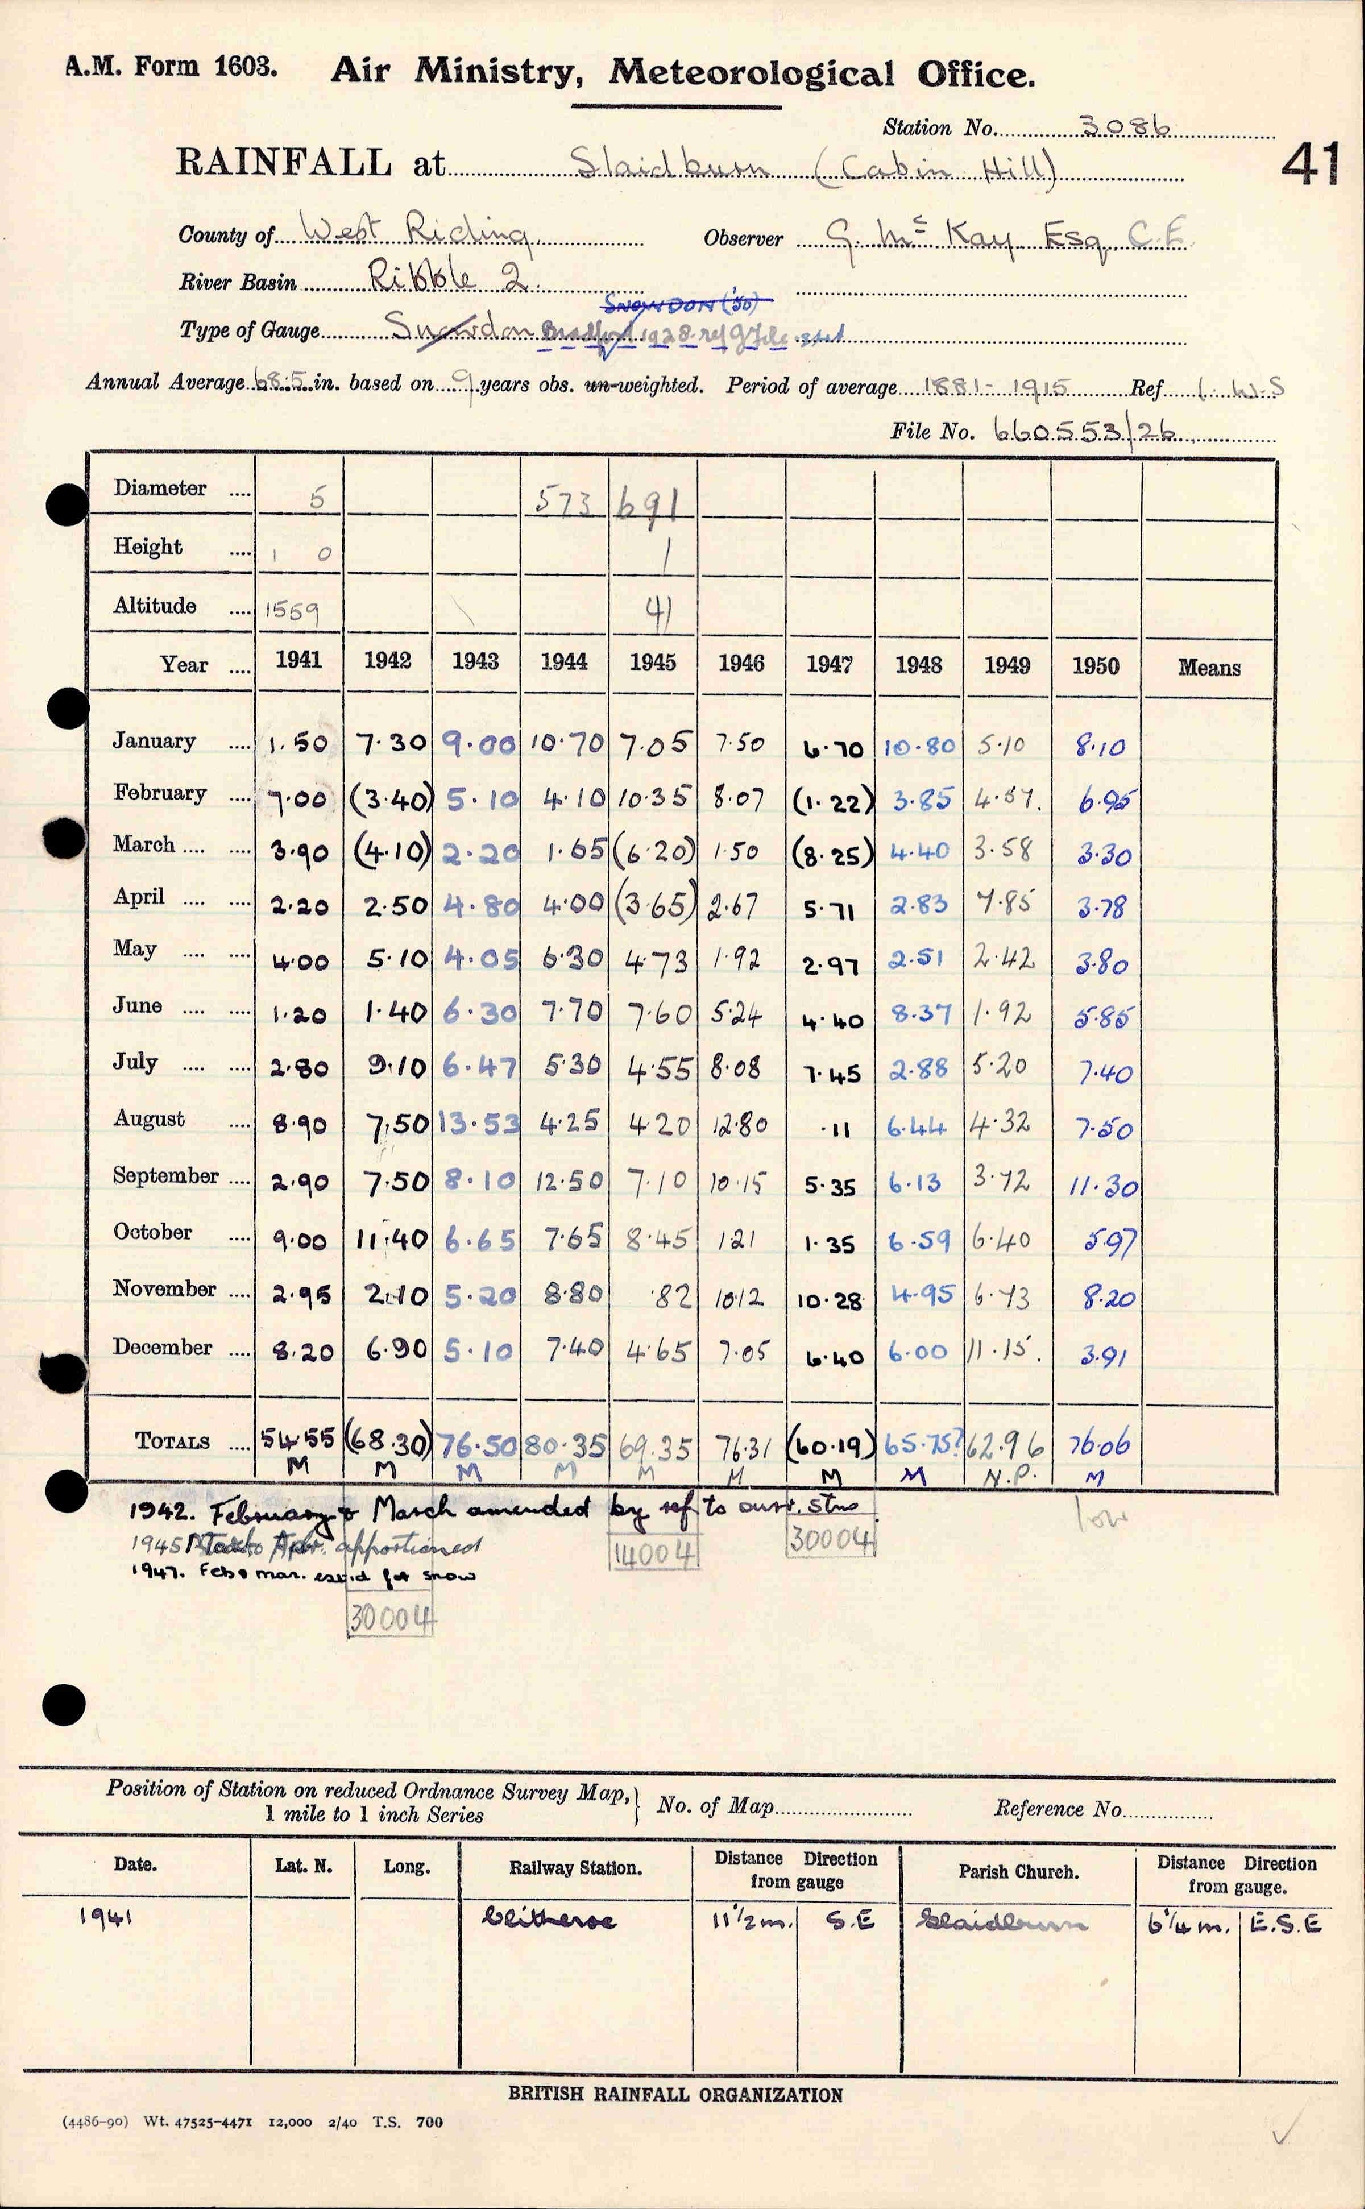 A.M. Form 1603. Air Ministry, Meteorological Office.
Station No. 3086
RAINFALL at Slaidburn (Cabin Hill) 41
County of West Riding. Observer G. Mc Kay Esq C.E.
River Basin Ribble 2.
SNOWDON ('50)
Type of Gauge Snowdon Bradford 1928
Annual Average 68.5 in. based on 9 years obs. un-weighted. Period of average 1881-1915 Ref W.S
File No. 660553/26
Diameter .... 5 573 691
Height .... 1 0 1
Altitude .... 1559 41
Year .... 1941 1942 1943 1944 1945 1946 1947 1948 1949 1950 Means
January .... 1.50 7.30 9.00 10.70 7.05 7.50 6.70 10.80 5.10 8.10
February .... 7.00 (3.40) 5.10 4.10 10.35 8.07 (1.22) 3.85 4.57. 6.95
March .... .... 3.90 (4.10) 2.20 1.65 (6.20) 1.50 (8.25) 4.40 3.58 3.30
April .... .... 2.20 2.50 4.80 4.00 (3.65) 2.67 5.71 2.83 7.85 3.78
May .... .... 4.00 5.10 4.05 6.30 4.73 1.92 2.97 2.51 2.42 3.80
June .... .... 1.20 1.40 6.30 7.70 7.60 5.24 4.40 8.37 1.92 5.85
July .... .... 2.80 9.10 6.47 5.30 4.55 8.08 7.45 2.88 5.20 7.40
August .... 8.90 7.50 13.53 4.25 4.20 12.80 .11 6.44 4.32 7.50
September .... 2.90 7.50 8.10 12.50 7.10 10.15 5.35 6.13 3.72 11.30
October .... 9.00 11.40 6.65 7.65 8.45 1.21 1.35 6.59 6.40 5.97
November .... 2.95 2.10 5.20 8.80 .82 10.12 10.28 4.95 6.73 8.20
December .... 8.20 6.90 5.10 7.40 4.65 7.05 6.40 6.00 11.15. 3.91
TOTALS .... 54.55 (68.30) 76.50 80.35 69.35 76.31 (60.19) 65.75? 62.96 76.06
M M M M M M M M N.P. M
1942. February & March amended by ref to surr. stns low
1945 Mar to Apr. apportioned 14004 30004
1947. Feb & mar. est'd for snow
30004
Position of Station on reduced Ordnance Survey Map, 1 mile to 1 inch Series } No. of Map Reference No.
Date. Lat. N. Long. Railway Station. Distance Direction from gauge Parish Church. Distance Direction from gauge.
1941 Clitheroe 11 1/2 m. S.E Slaidburn 6 1/4 m. E.S.E
BRITISH RAINFALL ORGANIZATION
(4486-90) Wt. 47525-4471 12,000 2/40 T.S. 700